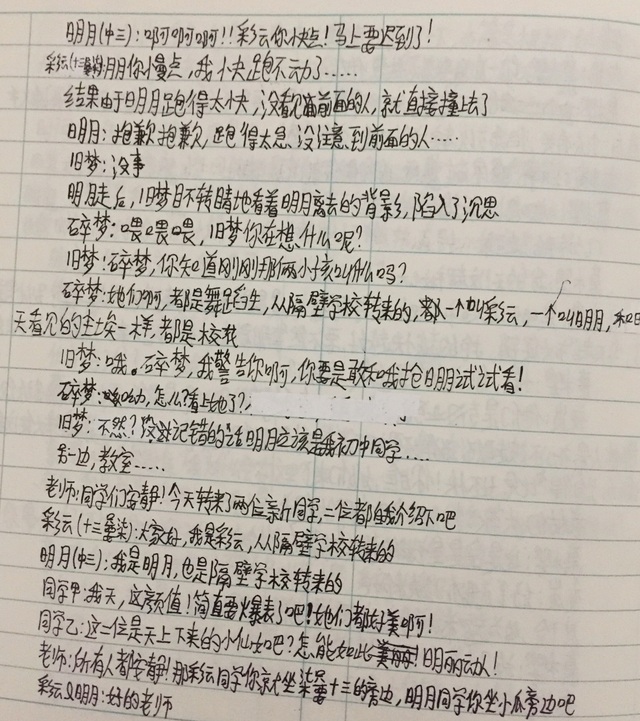 明月(中三):啊啊啊啊!!彩云你快点!马上要迟到了!
彩云(十三):明月你慢点,我快跑不动了……
结果由于明月跑得太快,没看见前面的人,就直接撞上去了
明月:抱歉抱歉,跑得太急、没注意到前面的人……
旧梦:没事
明月走后,旧梦目不转睛地看着明月离去的背影,陷入了沉思
碎梦:喂喂喂,旧梦你在想什么呢?
旧梦:碎梦,你知道刚刚那俩小孩叫什么吗?
碎梦:她们啊,都是舞蹈生,从隔壁学校转来的,一个叫彩云,一个叫明月,和
天看见的一样,都是校花
旧梦:哦。碎梦,我警告你啊,你要是敢和我抢明月试试看!
碎梦:怎么?看上她了?
旧梦:不然?没记错的话明月应该是我初中同学……
另一边,教室……
老师:同学们安静!今天转来了两位新同学,二位都自我介绍下吧
彩云(十三):大家好,我是彩云,从隔壁学校转来的
明月(中三):我是明月,也是隔壁学校转来的
同学甲:我天,这颜值!简直要爆表了吧!她们都好美啊!
同学乙:这二位是天上下来的小仙女吧?怎能如此明丽动人!
老师:所有人都安静!那彩云同学你就坐十三的旁边,明月同学你坐小瓜旁边吧
彩云&明月:好的老师